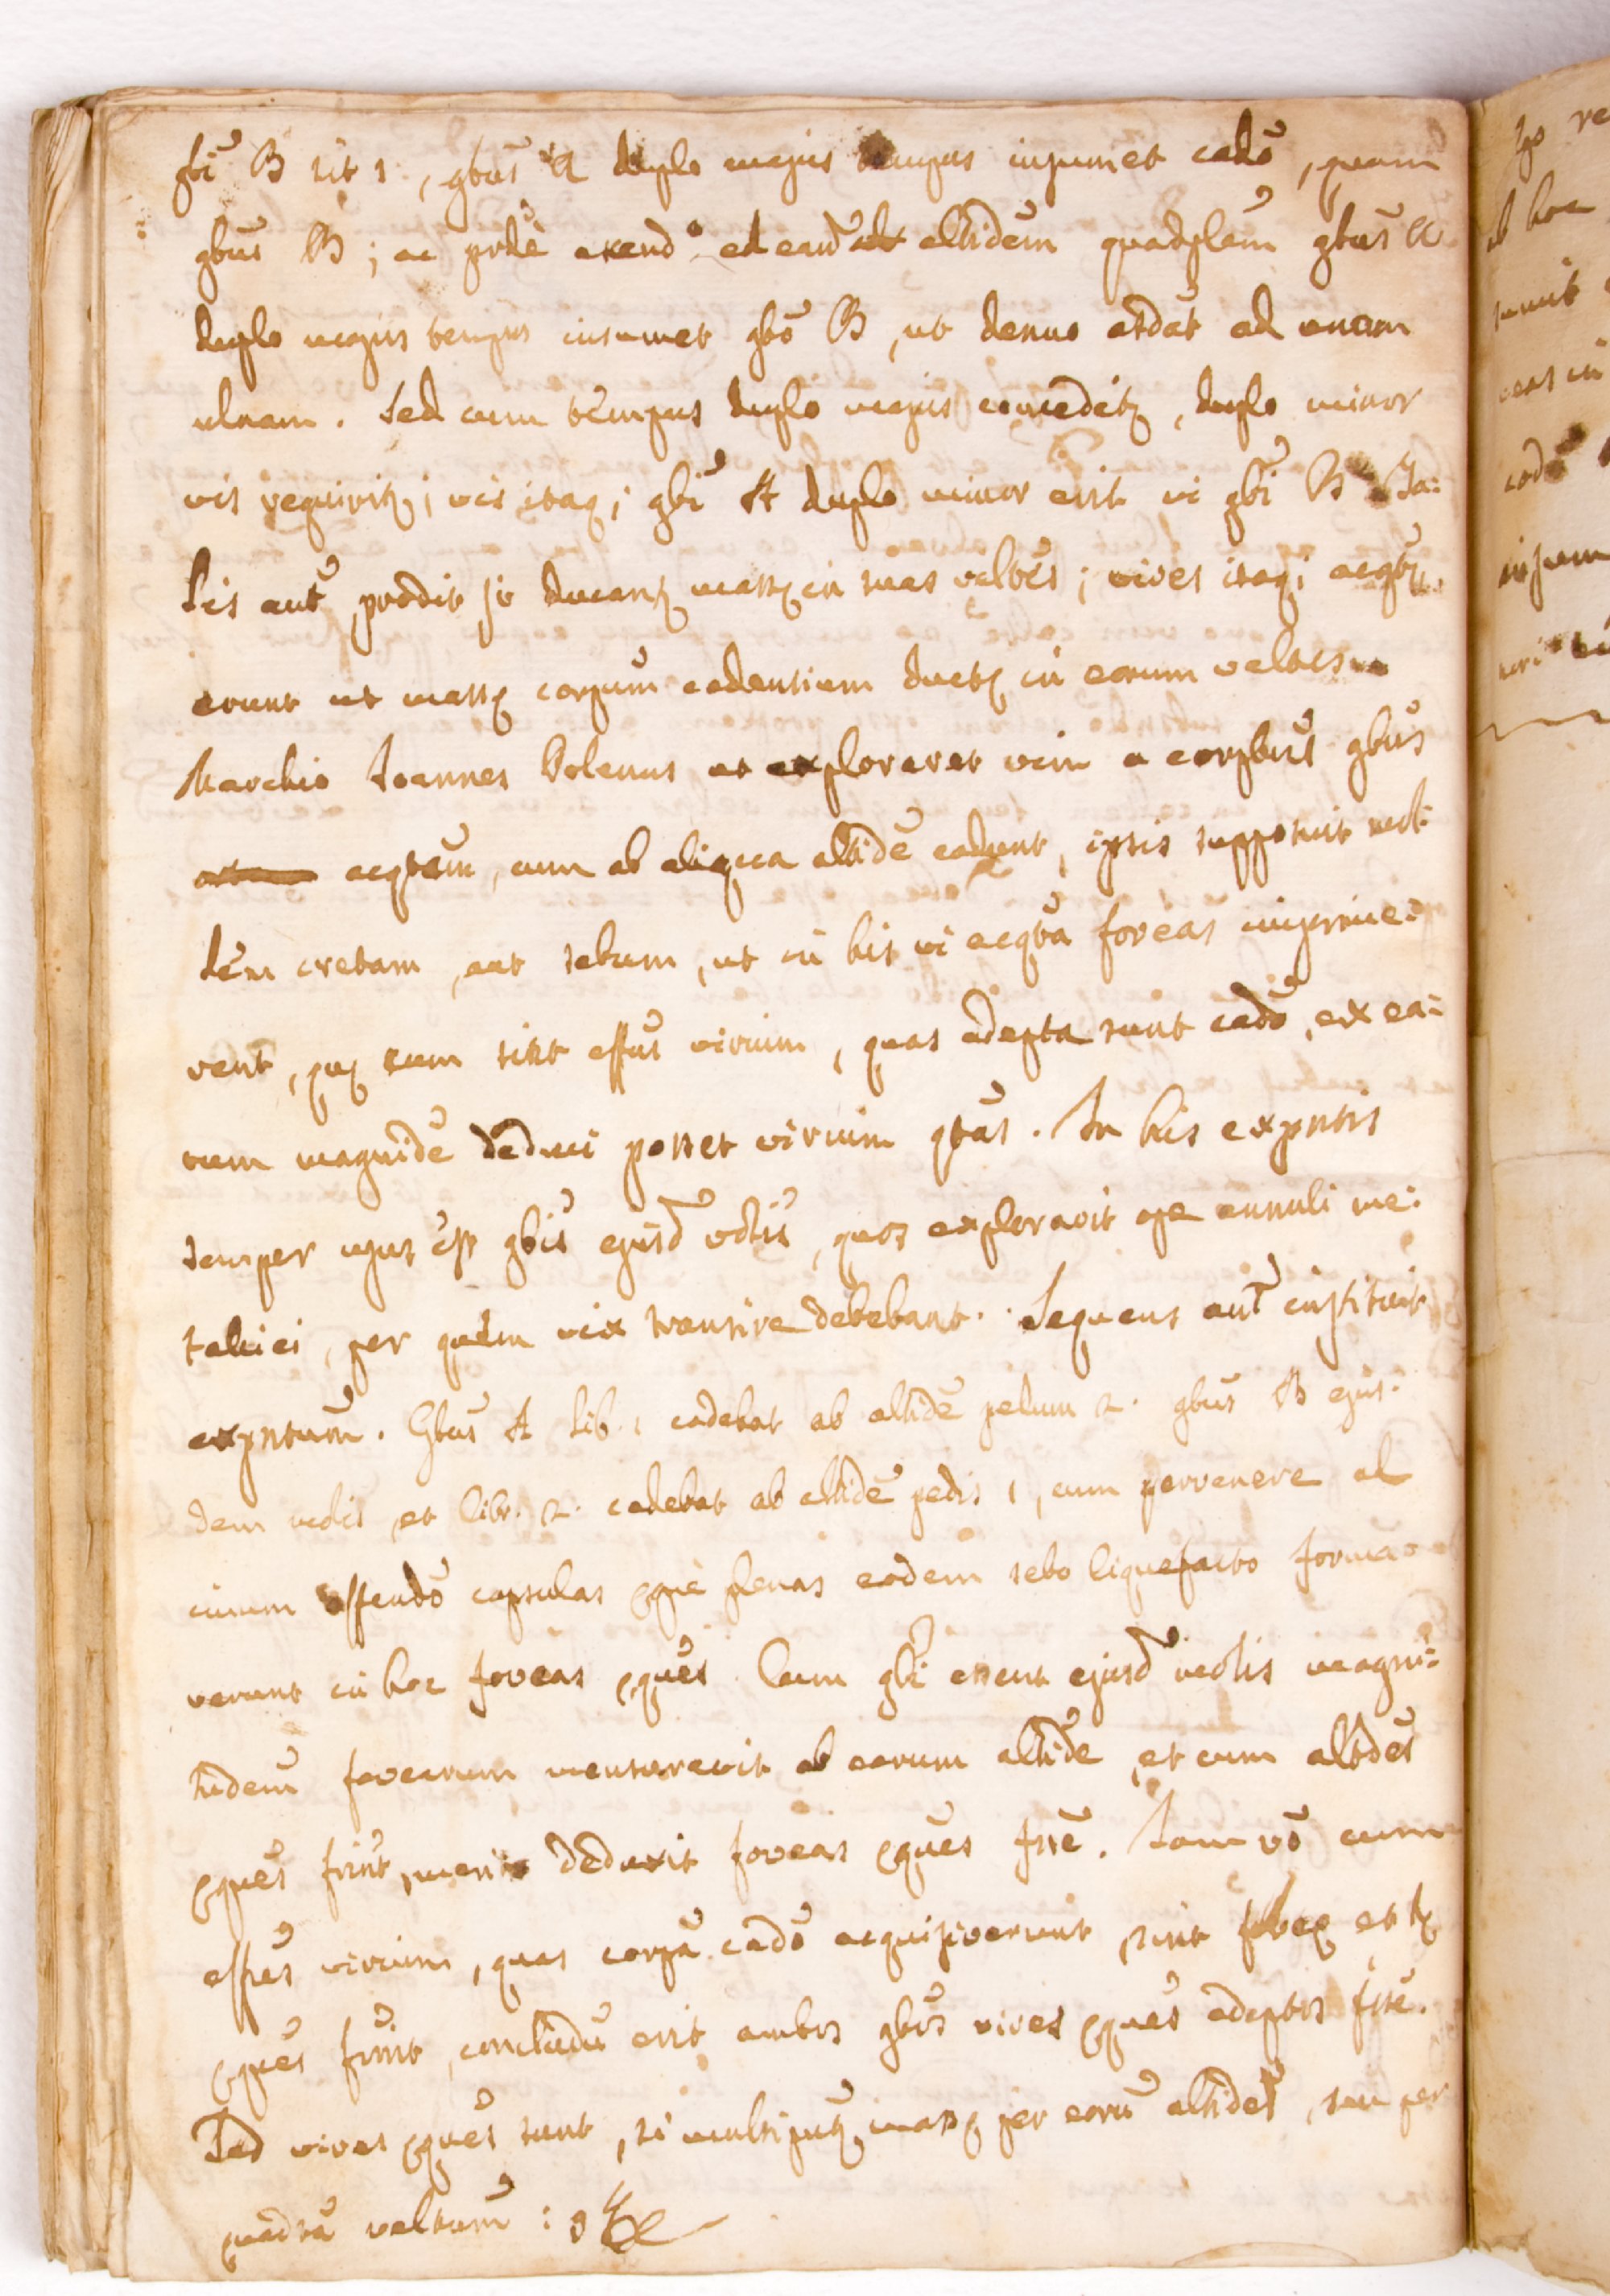 gbi B sit 1, gbus A duplo majus tempus insumet cado, quam
gbus B; ac prode axend ad eand altidem quadplam gbus A
duplo majus tempus insumet gbo B, ut denuo atdat ad unam
ulnam. Sed cum tempus duplo majus conceditę, duplo minor
vis requiritę; vis itaq; gbi A duplo minor erit vi gbi B Ta:
lis aut prodit si ducantę massę in suas veltes; vires itaq; acqtę
erunt ut massę corpum cadentium ductę in eorum veltes
Marchio Joannes Polenus ut exploraret vim a corpbus gbus
acqtam, cum ab aliqua altide cadunt, ipsis supposuit mol:
lem cretam, aut sebum, ut in his vi acqta foveas imprime:
rent, quę cum sint effus virium, quas adepta sunt cado, ex ea:
rum magnide deduci posset virium qtas. In his expntis
semper usus est gbis ejusd molis, quos exploravit ope annuli me:
tallici, per quem vix transire debebant. Sequens aut instituit
expntum. Gbus A lib. 1 cadebat ab altide pedum 2. gbus B ejus:
dem molis et libr. 2. cadebat ab altide pedis 1, cum pervenere ad
imum offendo capsulas ęque plenas eodem sebo liquefacto forma
verunt in hoc foveas ęques. Cum gbi essent ejusd molis magni:
tudem fovearum mensuravit ab earum altide, et cum altdes
ęques frint, merito deduxit foveas ęques fsse. Jam vo cum
effus virium, quas corpa cado acquisiverunt, sint foveę et hę
ęques frint, concludu erit ambos gbos vires ęques adeptos fsse.
Sed vires ęques sunt, si multipntę massę per eoru altides, seu per
quadta veltum: